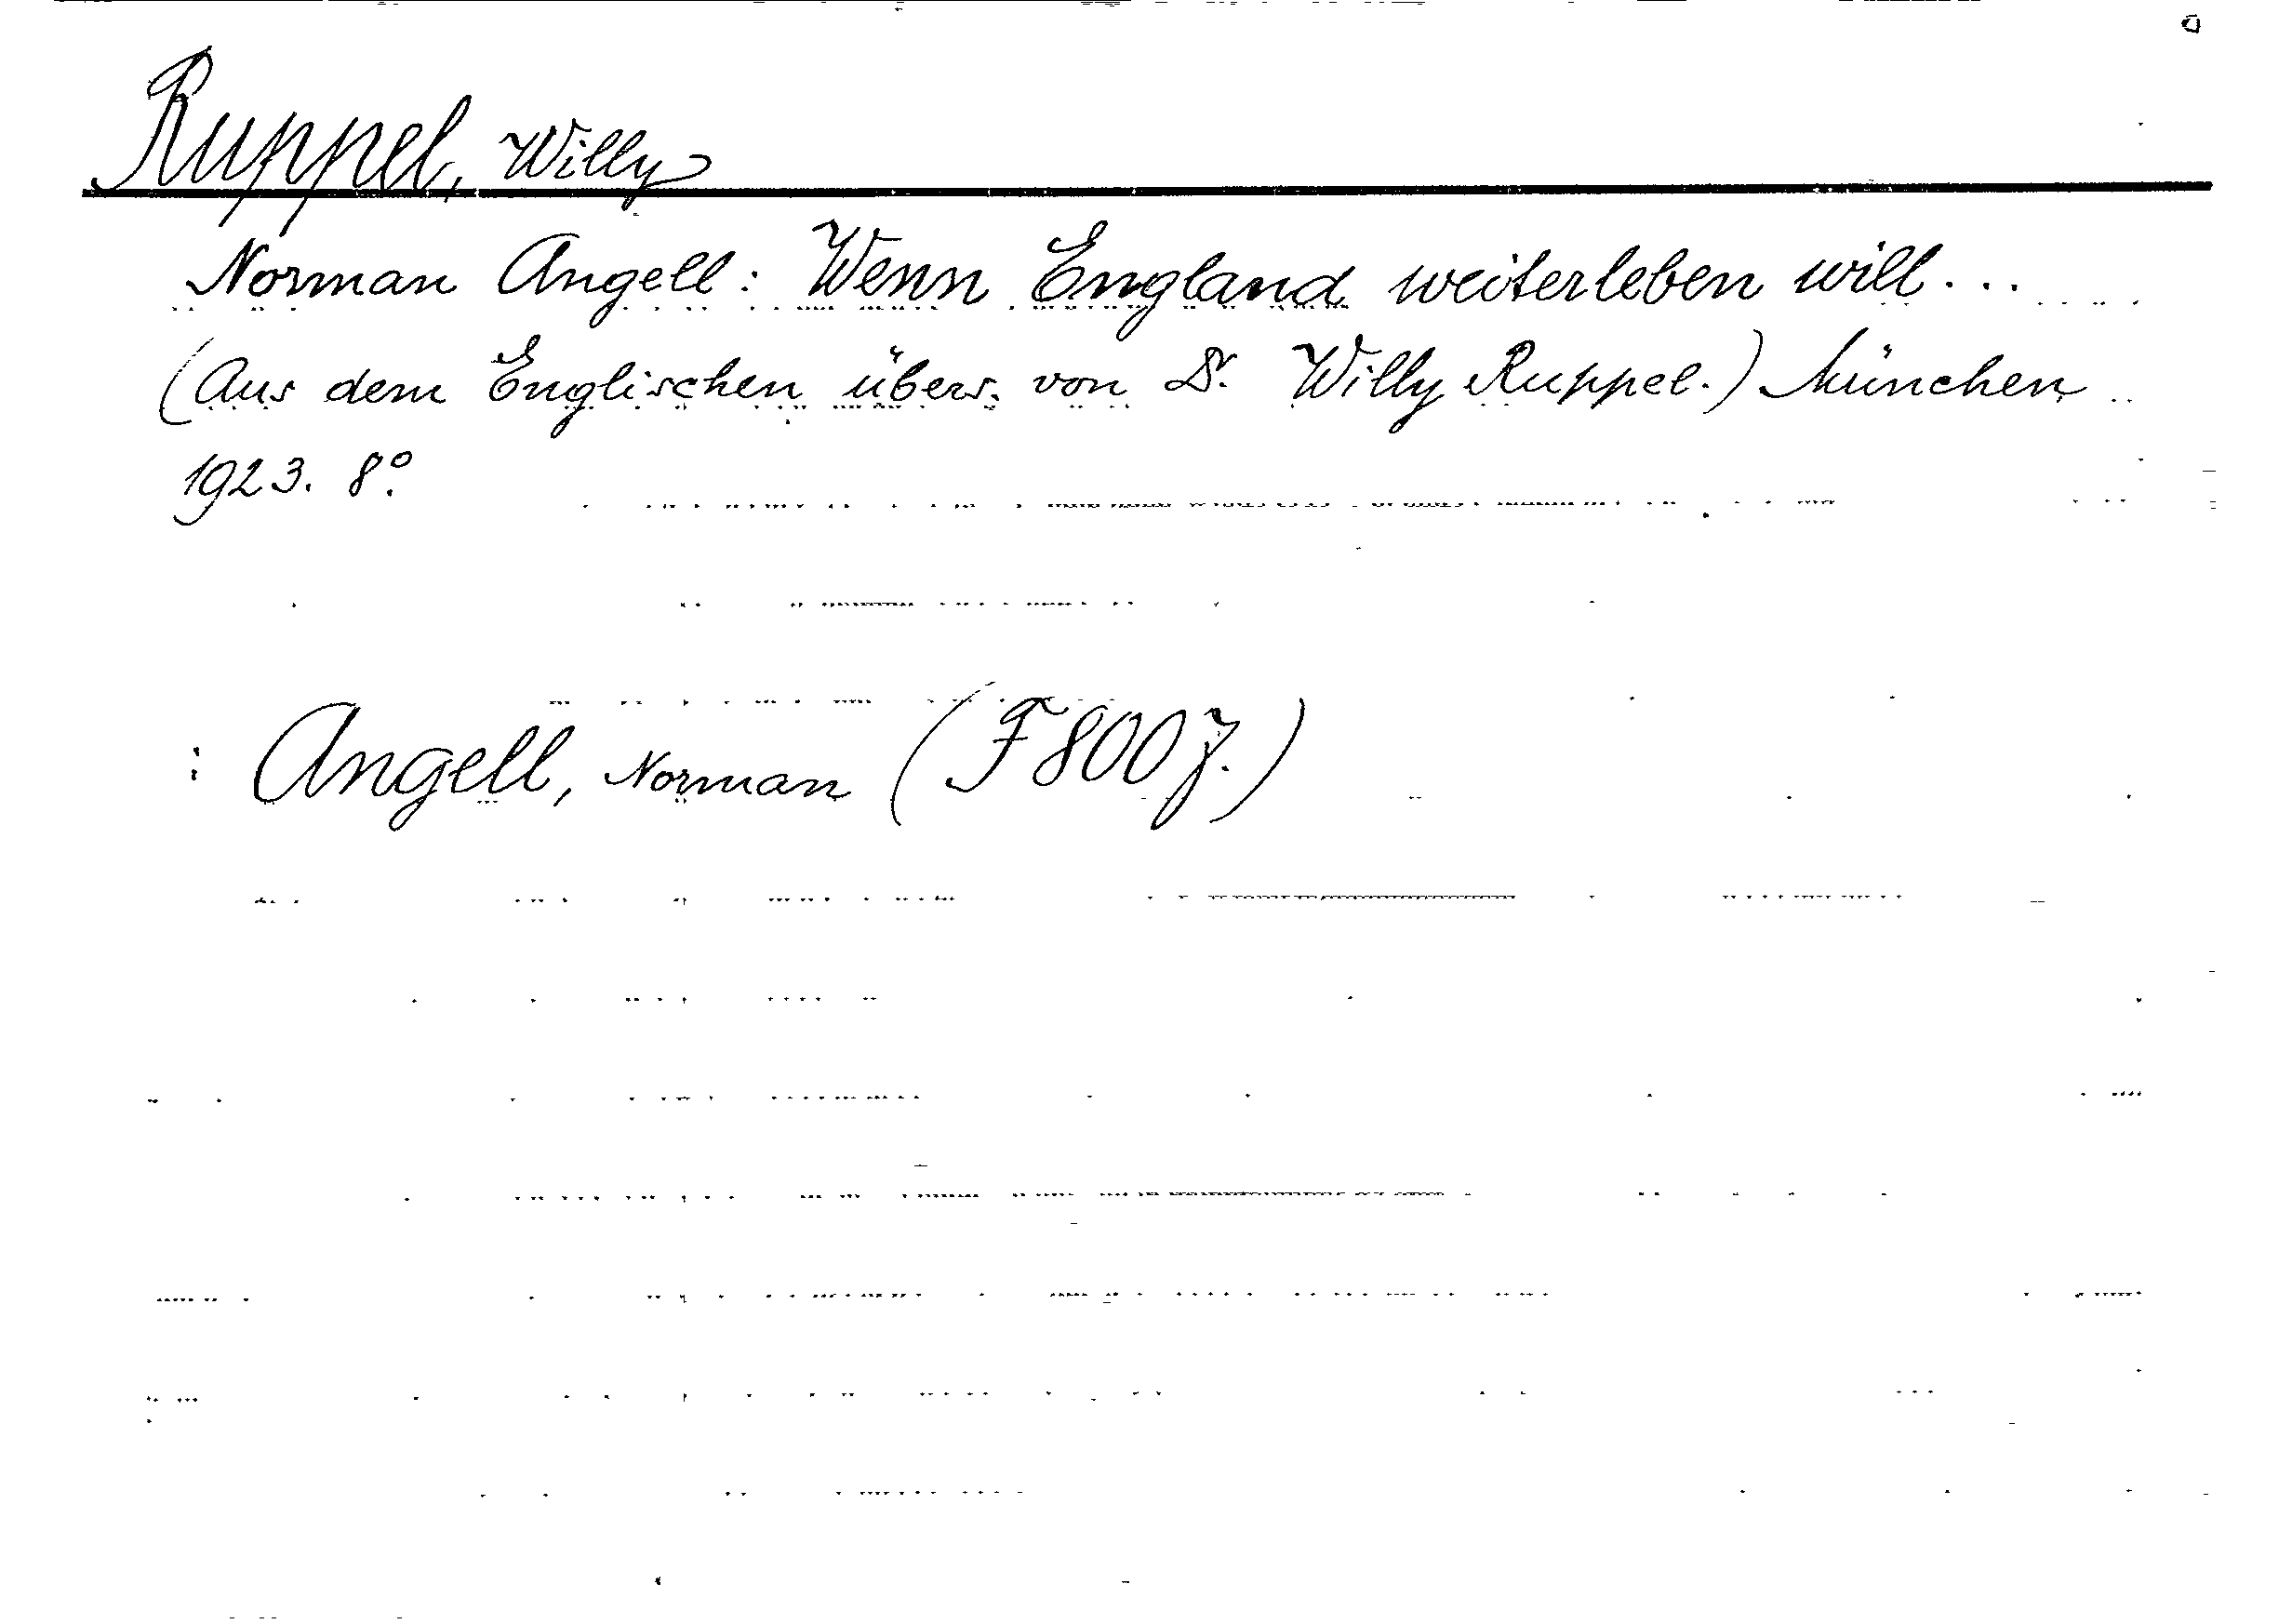 Ruppel, Willy
Norman Angell: Wenn England weiterleben will...
(Aus dem Englischen übers. von Dr. Willy Ruppel.) München
1923. 8°.
: Angell, Norman (F 800 J.)